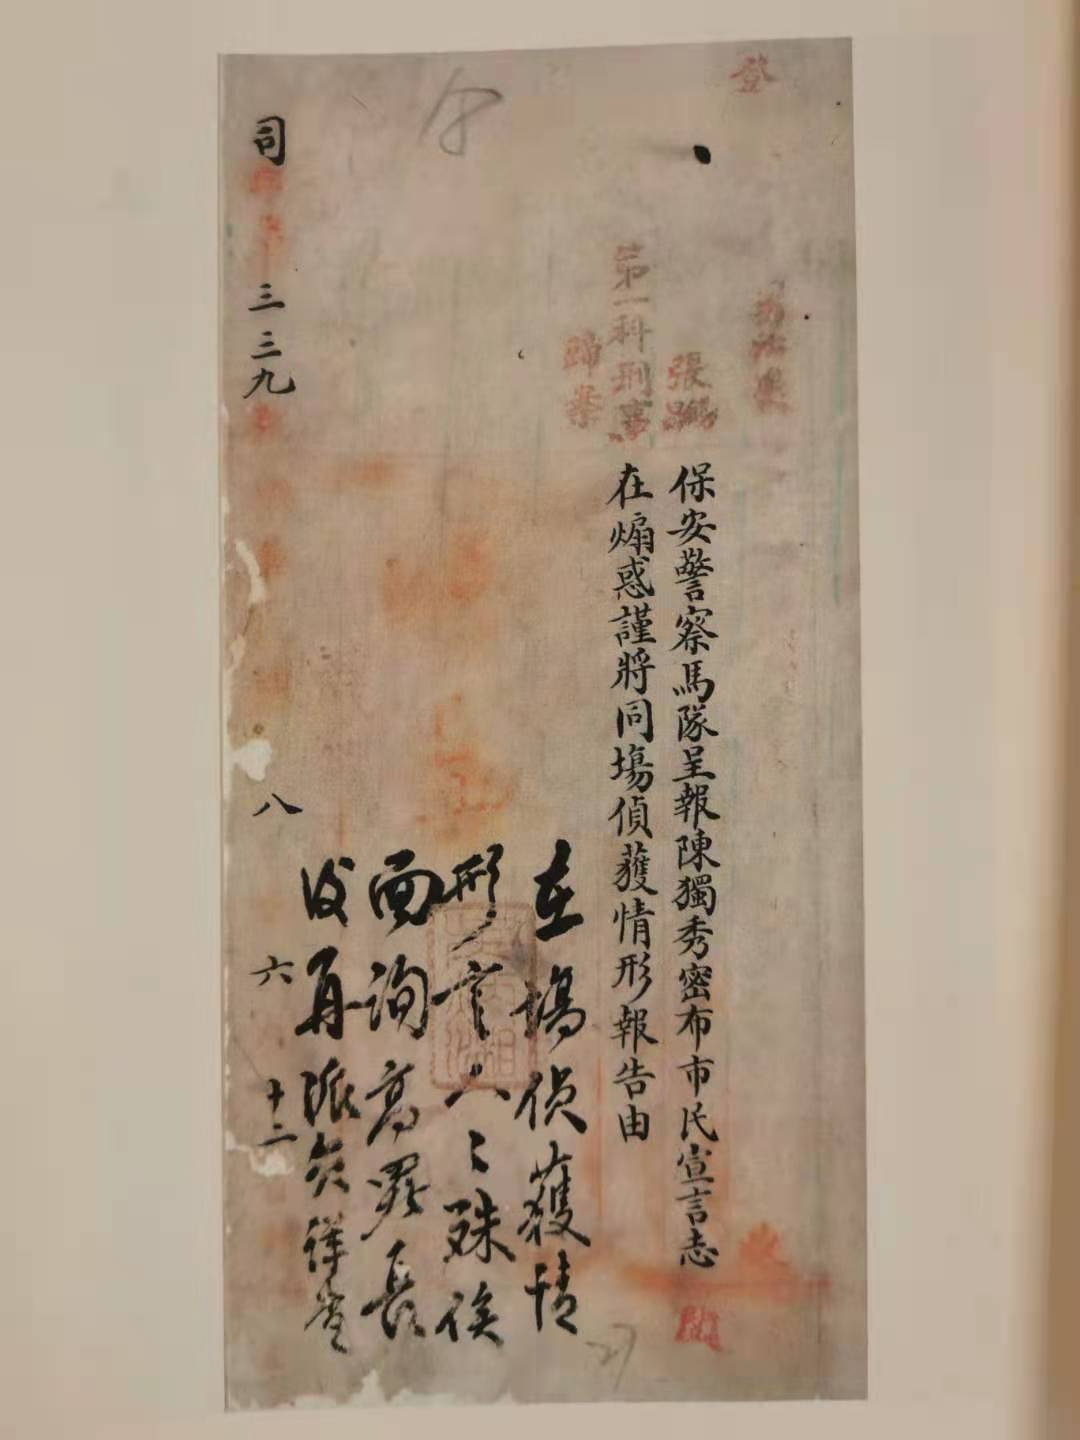 登
張
第一科刑事
歸案
保安警察馬隊呈報陳獨秀密布市民宣言志
在煽惑謹將同場偵獲情形報告由
在場偵獲情
形言人〻殊俟
面詢高署長
後再派員詳查
司
三三九
八
六
十二